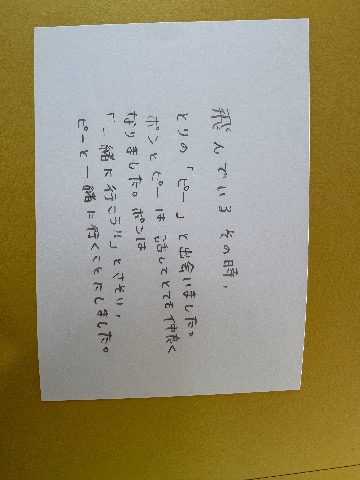 飛んでいるその時、
とりの「ピー」と出会いました。
ポンとピーは話してとても仲良く
なりました。ポンは
「一緒に行こう!!」とさそい、
ピーと一緒に行くことにしました。